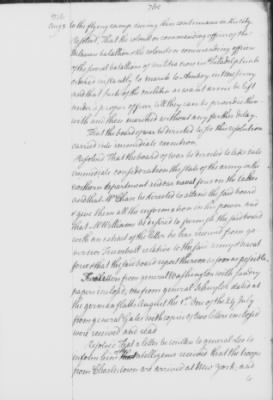 to the flying camp during their continuance in the city
Resolved, That the colonels or commanding officers of the
Delaware battalion & the colonels or commanding officers
of the several battalions of militia now in Philadelphia be
ordered instantly to march to Amboy in New Jersey
and that such of the militia as want arms be left
under proper officers till they can be provided there
with and then marched without any farther delay.
That the board of war be directed to see this resolution
carried into immediate execution.
Resolved That the board of war be directed to take into
immediate consideration the state of the army in the
northern department and our naval force on the lakes
and that Mr Chase be directed to attend the said board
& give them all the information in his power and
that Mr Williams be desired to furnish the said board
with an extract of the letter he has received from go
vernor Trumbull relative to the said army & naval
force & that the said board report thereon as soon as possible.
A letter from general Washington with sundry
papers inclosed, one from general Schuyler dated at
the german flatts August the 1st. One of the 29 July
from general Gates with copies of two letters inclosed
were received and read
Resolved That a letter be written to general Lee to
inform him the intelligence received that the troops
from Charlestown are arrived at New York, and